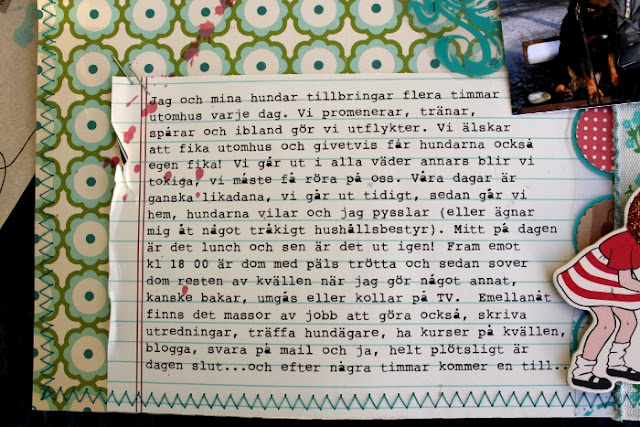 Jag och mina hundar tillbringar flera timmar
utomhus varje dag. Vi promenerar, tränar,
spårar och ibland gör vi utflykter. Vi älskar
att fika utomhus och givetvis får hundarna också
egen fika! Vi går ut i alla väder annars blir vi
tokiga, vi måste få röra på oss. Våra dagar är
ganska likadana, vi går ut tidigt, sedan går vi
hem, hundarna vilar och jag pysslar (eller ägnar
mig åt något tråkigt hushållsbestyr). Mitt på dagen
är det lunch och sen är det ut igen! Fram emot
kl 18 00 är dom med päls trötta och sedan sover
dom resten av kvällen när jag gör något annat,
kanske bakar, umgås eller kollar på TV. Emellanåt
finns det massor av jobb att göra också, skriva
utredningar, träffa hundägare, ha kurser på kvällen,
blogga, svara på mail och ja, helt plötsligt är
dagen slut...och efter några timmar kommer en till..